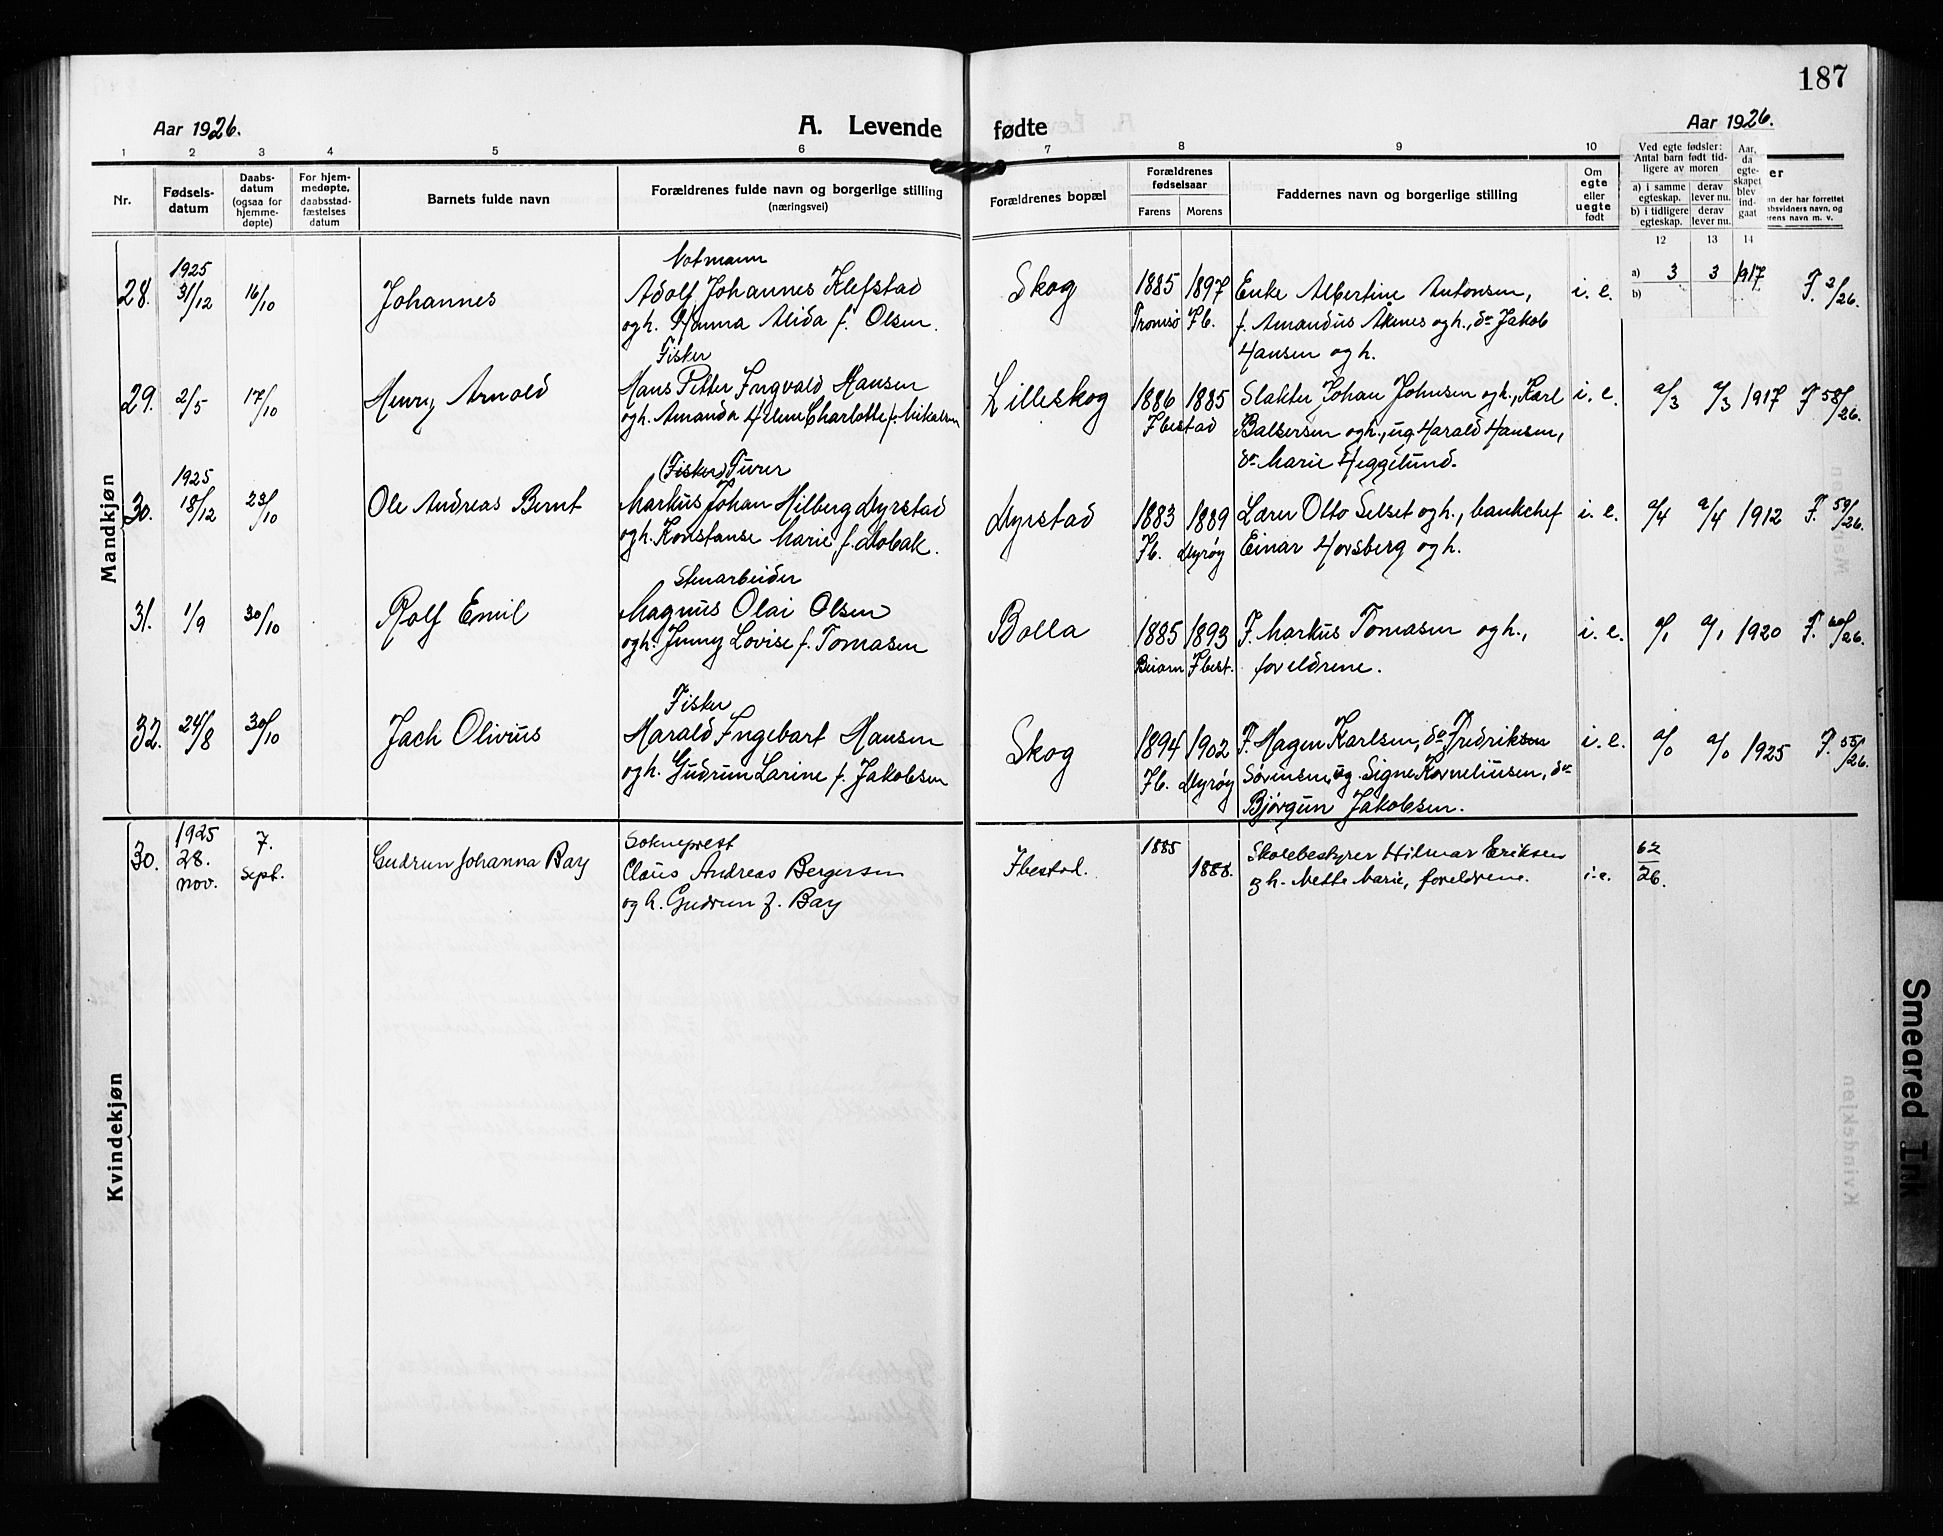 187
Aar 1926.
A. Levende fødte
Aar 1926.
1 2 3 4 5 6 7 8 9 10
Nr.
Fødsels-
datum
Daabs-
datum
(ogsaa for
hjemme-
døpte)
For hjem-
medøpte,
daabsstad-
fæstelses
datum
Barnets fulde navn
Forældrenes fulde navn og borgerlige stilling
(næringsvei)
Forældrenes bopæl
Forældrenes
fødselsaar
Farens Morens
Faddernes navn og borgerlige stilling
Om
egte
eller
uegte
født
Ved egte fødsler:
Antal barn født tid-
ligere av moren
a) i samme
egteskap.
derav
lever nu.
b) i tidligere
egteskap.
derav
lever nu.
Aar,
da
egte-
skapet
blev
ind-
gaat
12 13 14
er
n der har forrettet
absvidners navn, og
erens navn m. v.
Mandkjøn
28.
1925
31/12
16/10
Johannes
Notmann
Adolf Johannes Klefstad
og h. Hanna Alida f. Olsen.
Skog
1885 1897
Tromsø Ib.
Enke Albertine Antonsen,
f. Amandus Aknes og h., do Jakob
Hansen og h.
i. e.
a) 3 3 1917
b)
F. 2/26.
29.
2/5
17/10
Henry Arnold
Fisker
Hans Petter Ingvald Hansen
og h. Amanda Helene Charlotte f. Mikalsen
Lilleskog
1886 1885
Ibestad
Slakter Johan Johnsen og h., Karl
Balsersen og h., ug. Harald Hansen,
do Marie Heggelund.
i. e.
a/3 a/3 1917 F 58/26.
30.
1925
18/12
23/10
Ole Andreas Bernt
(Fisker) Furer
Markus Johan Hilberg Myrstad
og h. Konstanse Marie f. Mobak.
Myrstad
1883 1889
Ib. Dyrøy
Lærer Otto Selset og h., bankchef
Einar Horsberg og h.
i. e.
a/4 a/4 1912 F. 59/26.
31.
1/9
30/10
Rolf Emil
Stenarbeider
Magnus Olai Olsen
og h. Jenny Lovise f. Tomasen
Bolla
1885 1893
Beiarn Ibest.
F. Markus Tomasen og h.,
foreldrene.
i. e.
a/1 a/1 1920 F. 60/26.
32.
24/8
30/10
Jach Olivius
Fisker
Harald Ingebart Hansen
og h. Gudrun Larine f. Jakobsen
Skog
1894 1902
Ib. Dyrøy
F. Hagen Karlsen, do Fredriksen
Sørensen, ug. Signe Korneliusen, do
Bjørgun Jakobsen.
i. e.
a/0 a/0 1925 F. 55/26.
Kvindekjøn
30.
1925
28.
nov.
7.
sept.
Gudrun Johanna Bay
Sokneprest
Claus Andreas Bergersen
og h. Gudrun f. Bay
Ibestad.
1885
1888.
Skolebestyrer Hilmar Eriksen
og h. Mette Marie, foreldrene.
i. e.
62/26.
Smeared Ink